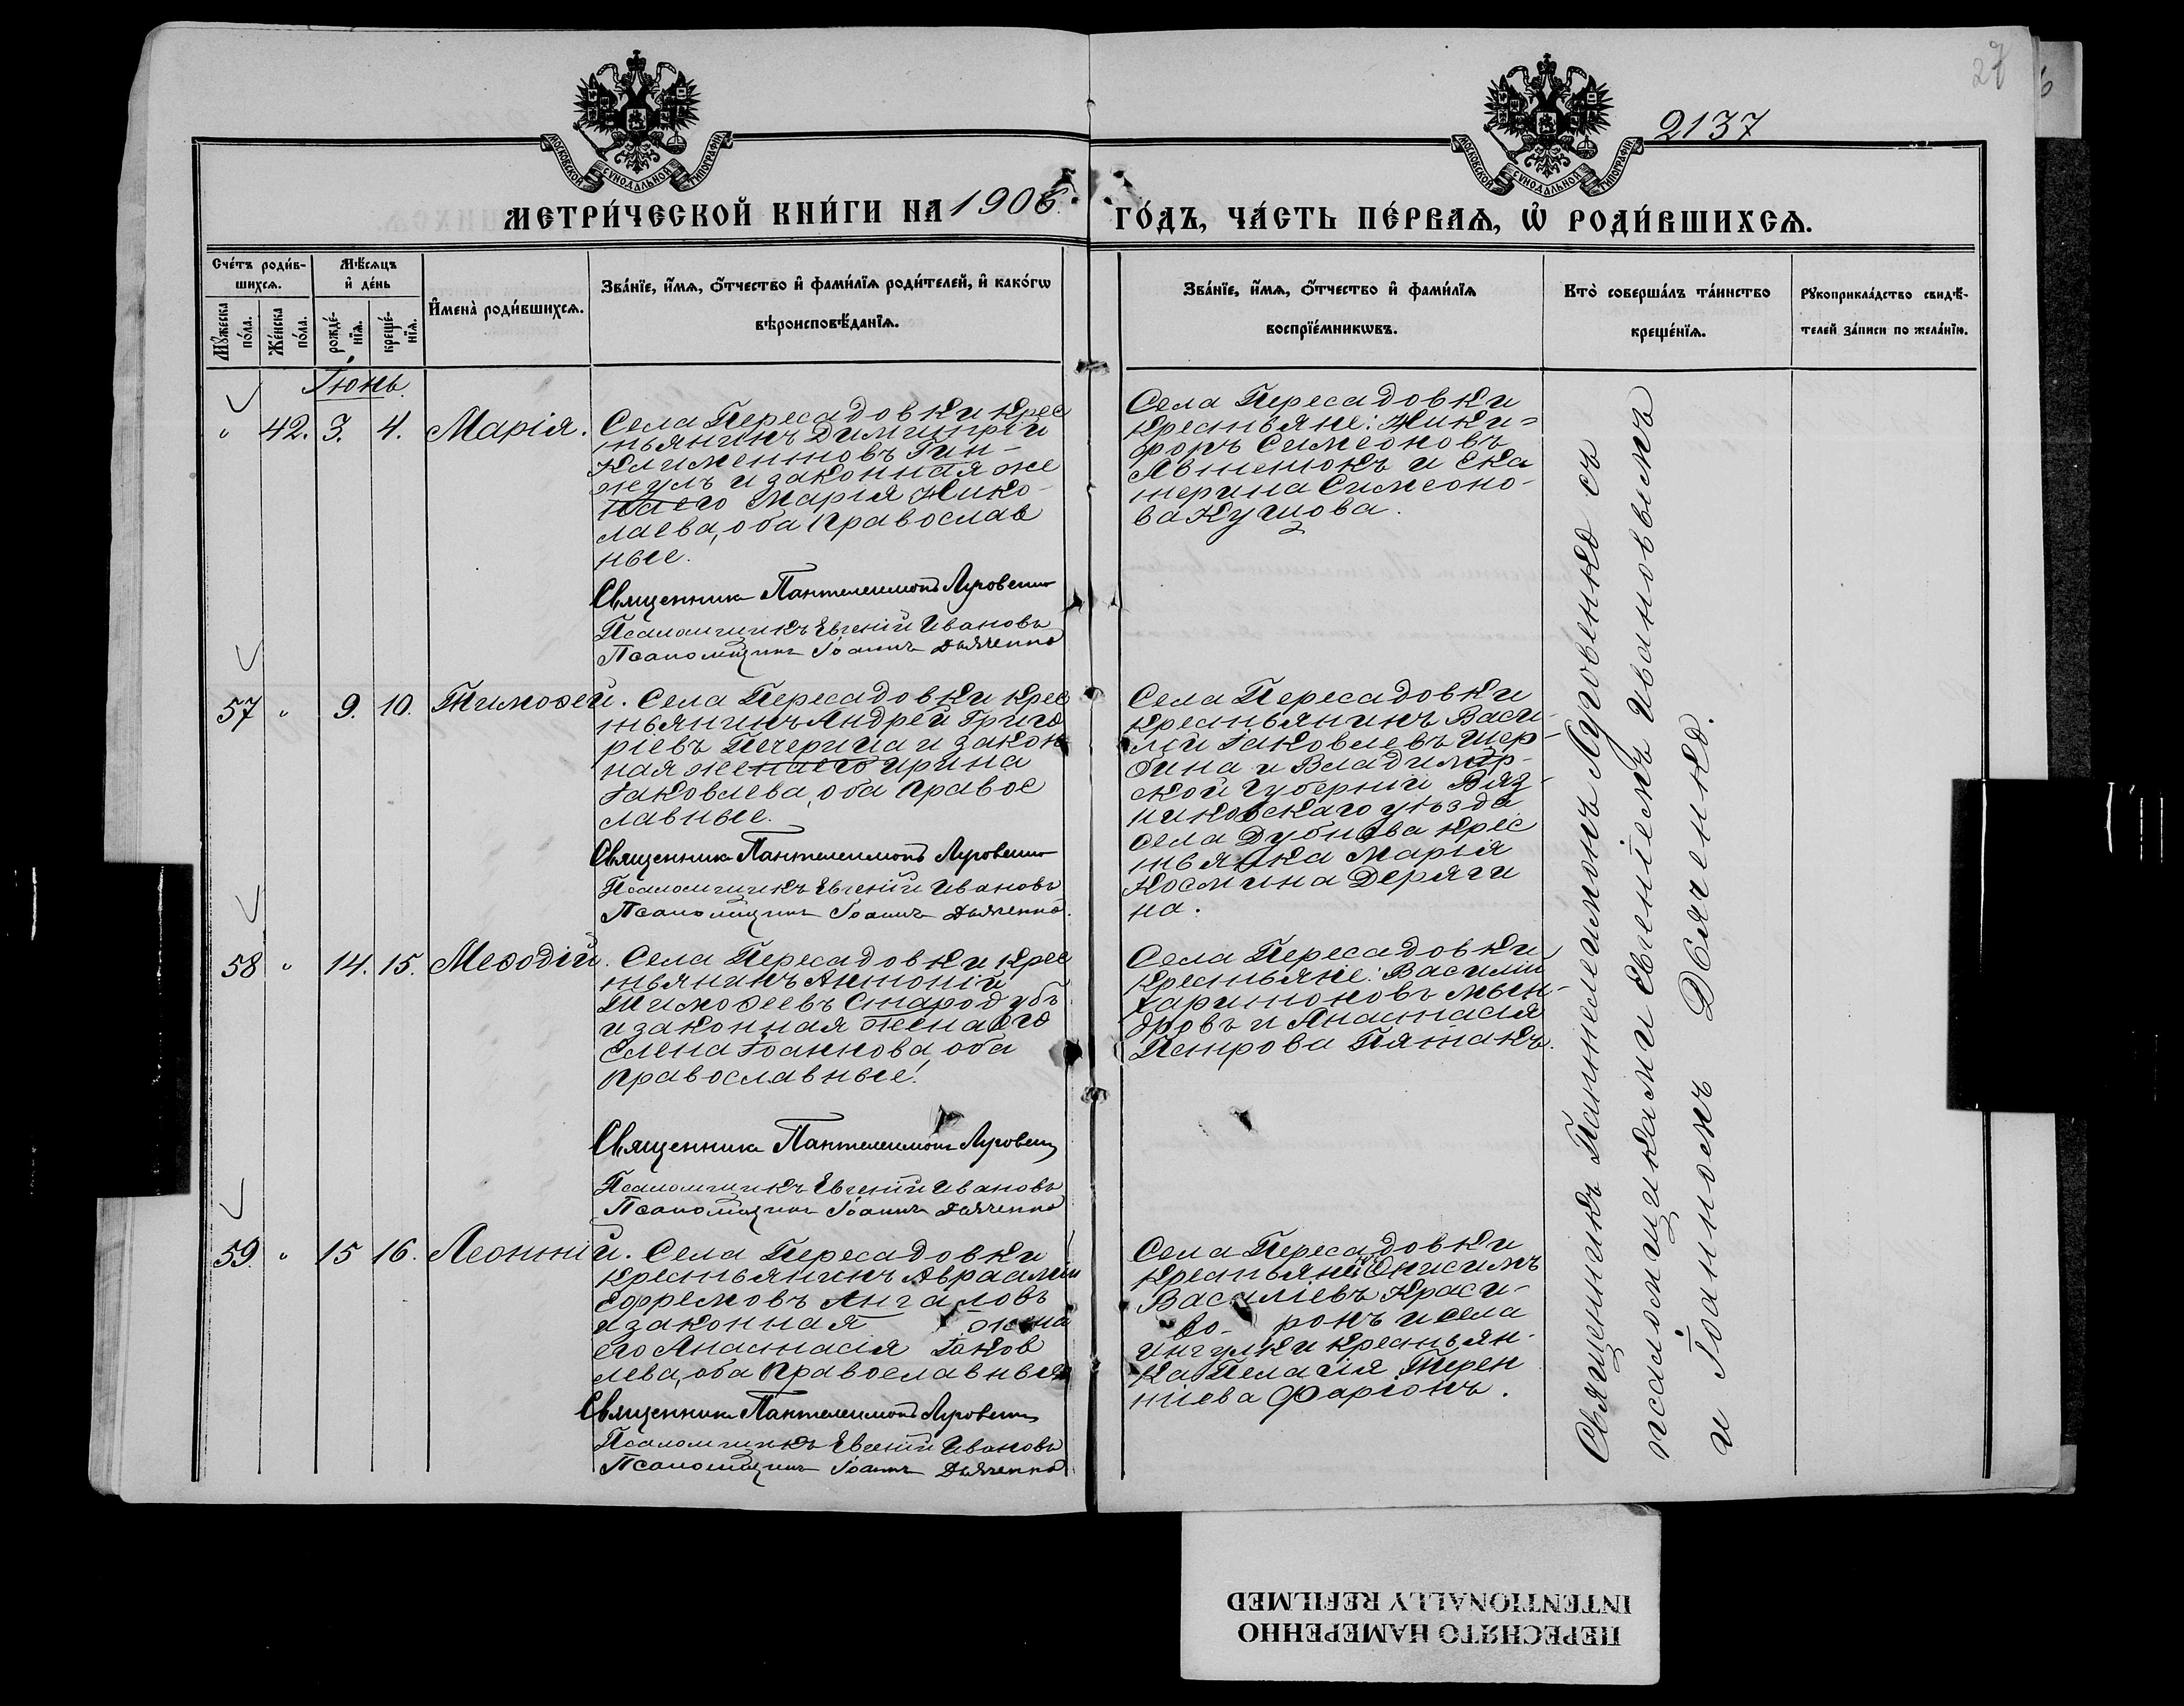 27
2137
МОСКОВСКОЙ СѴНОДАЛЬНОЙ ТИПОГРАФІИ
МОСКОВСКОЙ СѴНОДАЛЬНОЙ ТИПОГРАФІИ
МЕТРИ́ЧЕСКОЙ КНИ́ГИ НА 1906. ГО́ДЪ, ЧА́СТЬ ПЕ́РВАѦ, Ѽ РОДИ́ВШИХСѦ.
Сче́тъ роди́в-
шихсѧ.
Мꙋ́жеска по́ла.
Же́нска по́ла.
Мѣ́сѧцъ
и҆ де́нь
рожде́-
нїѧ.
креще́-
нїѧ.
И҆мена̀ роди́вшихсѧ.
Зва́нїе, и҆́мѧ, ѻ҆́тчество и҆ фами́лїѧ роди́телей, и҆ како́гѡ
вѣроисповѣ́данїѧ.
Зва́нїе, и҆́мѧ, ѻ҆́тчество и҆ фами́лїѧ
воспрїе́мникѡвъ.
Кто̀ соверша́лъ та́инство
креще́нїѧ.
Рꙋкоприкла́дство свидѣ́-
телей за́писи по жела́нїю.
Іюнь.
" 42. 3. 4. Марія.
Села Пересадовки крес
тьянинъ Димитрій
Климентовъ Гин-
жулъ и законная же
на его Марія Нико-
лаева, оба православ
ные.
Священникъ Пантелеимонъ Луговенко
Псаломщикъ Евгеній Ивановъ
Псаломщикъ Іоаннъ Дьяченко
Села Пересадовки
крестьяне: Ники-
форъ Симеоновъ
и Ека
терина Симеоно-
ва
57 " 9. 10. Тимоѳей.
Села Пересадовки крес
тьянинъ Андрей Григо
ріевъ Печерица и закон
ная жена его Ирина
Іаковлева, оба право
славные.
Священникъ Пантелеимонъ Луговенко
Псаломщикъ Евгеній Ивановъ
Псаломщикъ Іоаннъ Дьяченко.
Села Пересадовки
крестьянинъ Васи-
лій Іаковлевъ Щер-
бина и Владимір-
ской губерніи Вяз-
никовскаго уѣзда
села Дубнова крес
тьянка Марія
Космина Деряги
на.
58 " 14. 15. Меѳодій.
Села Пересадовки крес
тьянинъ Антоній
Тимоѳеевъ Стародубъ
и законная жена его
Елена Іоаннова, оба
православные.
Священникъ Пантелеимонъ Луговенко
Псаломщикъ Евгеній Ивановъ
Псаломщикъ Іоаннъ Дьяченко
Села Пересадовки
крестьяне: Василій
Харитоновъ
и Анастасія
Петрова Пятакъ.
59. " 15 16. Леонтій.
Села Пересадовки
крестьянинъ Авраамій
Ефремовъ Ангаловъ
и законная жена
его Анастасія Іаков
лева, оба православные
Священникъ Пантелеимонъ Луговенко
Псаломщикъ Евгеній Ивановъ
Псаломщикъ Іоаннъ Дьяченко
Села Пересадовки
крестьянинъ Онисимъ
Василіевъ Краси-
во- ронъ и села
Ингулки крестьян-
ка Пелагія Терен
тіева Фаріонъ.
Священникъ Пантелеимонъ Луговенко съ
псаломщиками Евгеніемъ Ивановымъ
и Іоанномъ Дьяченко.
ПЕРЕСНЯТО НАМЕРЕННО
INTENTIONALLY REFILMED